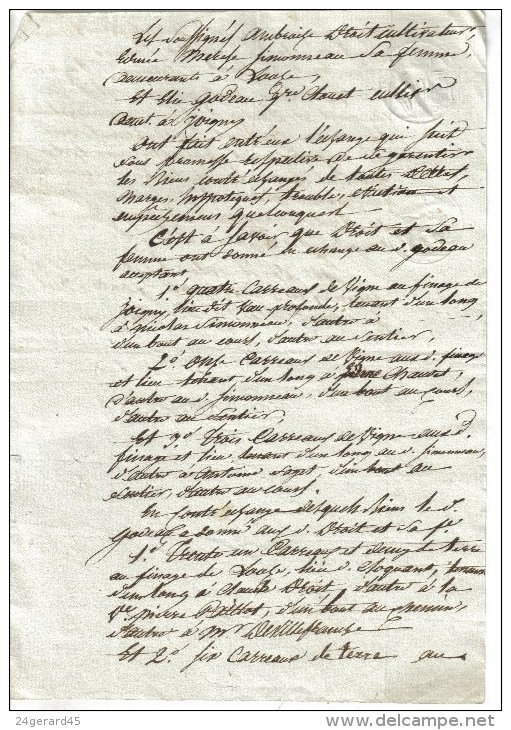 Les Soussignés Ambroise Droit cultivateur,
Marie simonneau Sa femme,
demeurants à Looze,
Et Elie Godeau
à Joigny
Ont fait entre eux l'échange qui suit
Sous promesse respective de se garentir
les Biens contréchangés de toutes Dettes,
trouble, éviction et
empêchemens quelconques
C'est à Savoir que Droit et Sa
femme ont donné en échange au d. Godeau
acceptant,
1.° quatre Carreaux de Vigne au finage de
Joigny, lieu dit Vau profonde, tenant d'un long
à nicolas Simonneau, d'autre à
d'un bout au cours, d'autre au Sentier,
2.° Onze Carreaux de Vigne aux d. finage
et lieu tenant, d'un long à
d'autre au d. simonneau, d'un bout au cours,
d'autre au Sentier,
Et 3.° Trois Carreaux de Vigne aux d.
finage et lieu, tenant d'un long au d. simonneau,
d'autre à Antoine d'un bout au
Sentier, d'autre au cours.
En contréchange desquels Biens le d.
Godeau a donné aux d. Droit et Sa fe.
1.° Trente un Carreaux et demy de terre
au finage de Looze, lieu d. tenant
d'un long à Claude Droit, d'autre à la
Ve. pierre d'un bout au chemin,
d'autre à Mr DeVillefranche
Et 2.° six Carreaux de terre au
24gerard45
delcampe.net